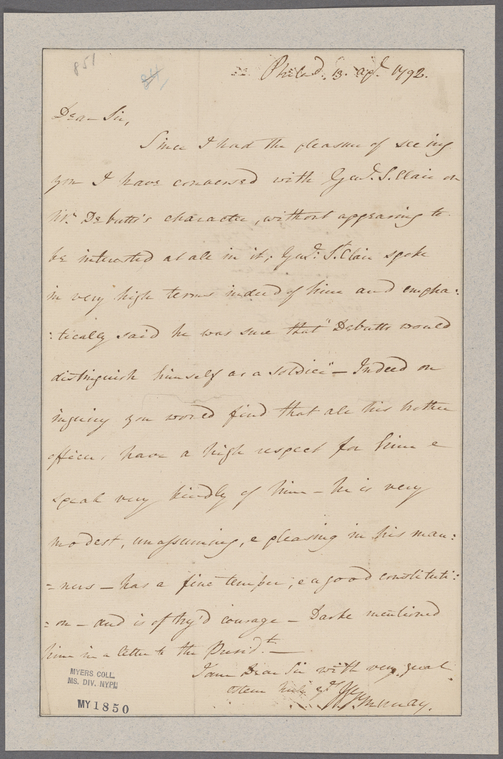 851
Philad. 13. apl. 1792.
Dear Sir,
Since I had the pleasure of seeing
you I have conversed with Genl. St. Clair on
Mr. Debutts's character, without appearing to
be interested at all in it; Genl. St. Clair spoke
in very high terms indeed of him and empha:
:tically said he was sure that "Debutts would
distinguish himself as a soldier" – Indeed on
inquiry you would find that all his brother
officers have a high respect for him &
speak very kindly of him – he is very
modest, unassuming, & pleasing in his man:
:ners – has a fine temper, & a good constituti:
:on – and is of try'd courage – Darke mentioned
him in a letter to the Presidt. –
I am Dear Sir with very great
esteem
Murray.
MYERS COLL.
MS. DIV. NYPL
MY 1850